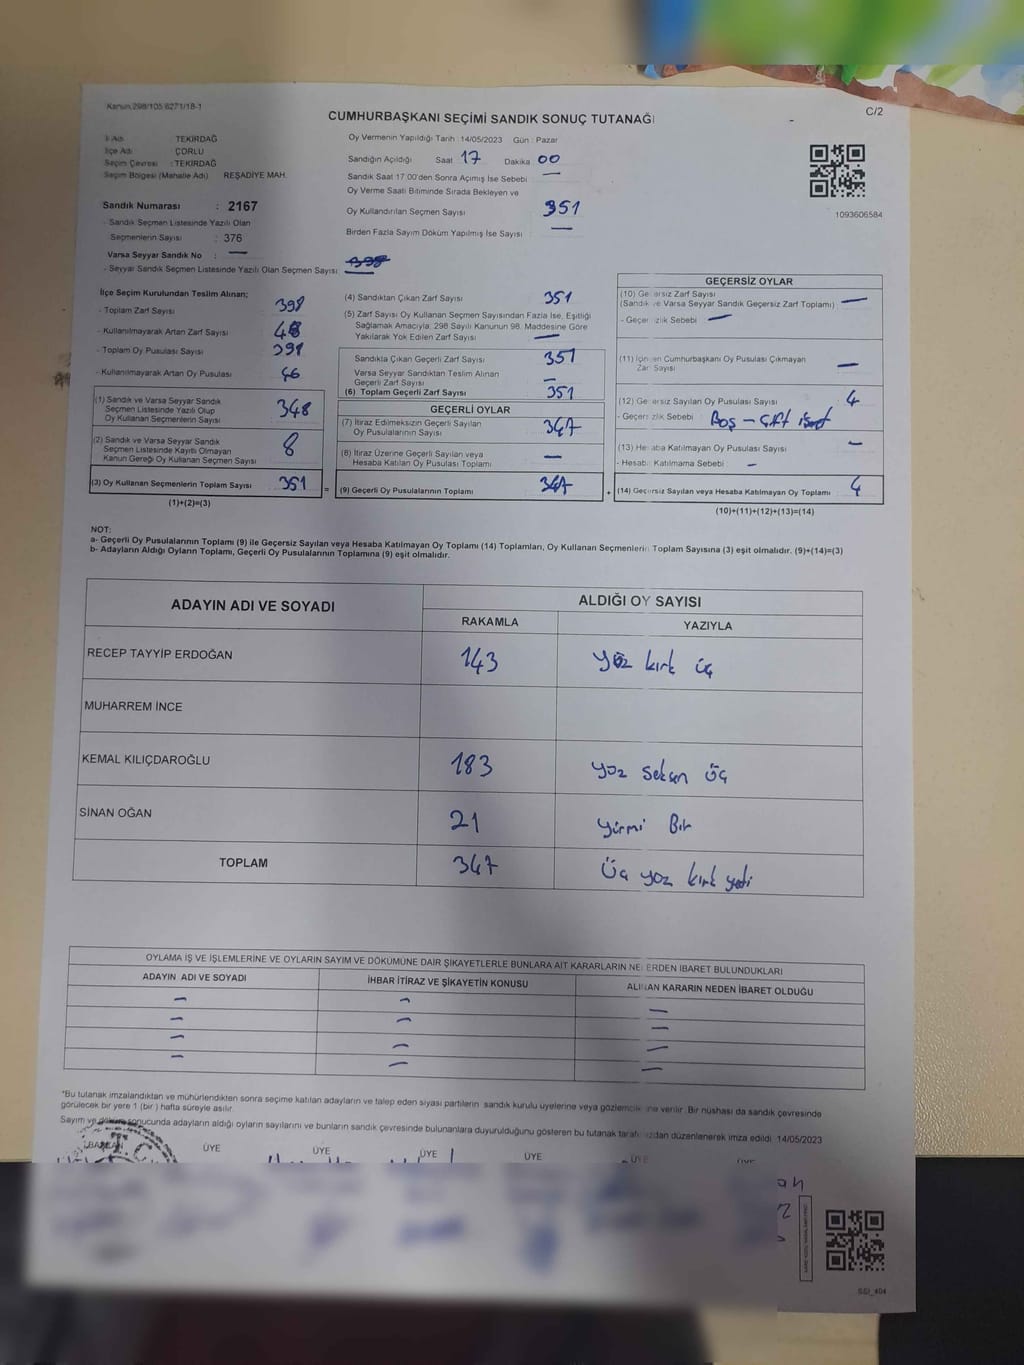 Kanun 298/105 6271/18-1
C/2
CUMHURBAŞKANI SEÇİMİ SANDIK SONUÇ TUTANAĞI
İl Adı : TEKİRDAĞ
İlçe Adı : ÇORLU
Seçim Çevresi : TEKİRDAĞ
Seçim Bölgesi (Mahalle Adı) REŞADİYE MAH.
Sandık Numarası : 2167
- Sandık Seçmen Listesinde Yazılı Olan
Seçmenlerin Sayısı : 376
Varsa Seyyar Sandık No : —
- Seyyar Sandık Seçmen Listesinde Yazılı Olan Seçmen Sayısı: —
Oy Vermenin Yapıldığı Tarih : 14/05/2023 Gün : Pazar
Sandığın Açıldığı Saat 17 Dakika 00
Sandık Saat 17:00'den Sonra Açımış İse Sebebi —
Oy Verme Saati Bitiminde Sırada Bekleyen ve
Oy Kullandırılan Seçmen Sayısı 351
Birden Fazla Sayım Döküm Yapılmış İse Sayısı —
1093606584
İlçe Seçim Kurulundan Teslim Alınan;
- Toplam Zarf Sayısı 398
- Kullanılmayarak Artan Zarf Sayısı
- Toplam Oy Pusulası Sayısı 391
- Kullanılmayarak Artan Oy Pusulası 46
(1) Sandık ve Varsa Seyyar Sandık
Seçmen Listesinde Yazılı Olup
Oy Kullanan Seçmenlerin Sayısı 348
(2) Sandık ve Varsa Seyyar Sandık
Seçmen Listesinde Kayıtlı Olmayan
Kanun Gereği Oy Kullanan Seçmen Sayısı 8
(3) Oy Kullanan Seçmenlerin Toplam Sayısı 351
(1)+(2)=(3)
(4) Sandıktan Çıkan Zarf Sayısı 351
(5) Zarf Sayısı Oy Kullanan Seçmen Sayısından Fazla İse, Eşitliği
Sağlamak Amacıyla; 298 Sayılı Kanunun 98. Maddesine Göre
Yakılarak Yok Edilen Zarf Sayısı —
Sandıkta Çıkan Geçerli Zarf Sayısı 351
Varsa Seyyar Sandıktan Teslim Alınan
Geçerli Zarf Sayısı —
(6) Toplam Geçerli Zarf Sayısı 351
GEÇERLİ OYLAR
(7) İtiraz Edilmeksizin Geçerli Sayılan
Oy Pusulalarının Sayısı 347
(8) İtiraz Üzerine Geçerli Sayılan veya
Hesaba Katılan Oy Pusulası Toplamı —
= (9) Geçerli Oy Pusulalarının Toplamı 347 +
GEÇERSİZ OYLAR
(10) Geçersiz Zarf Sayısı
(Sandık ve Varsa Seyyar Sandık Geçersiz Zarf Toplamı) —
- Geçersizlik Sebebi : —
(11) İçinden Cumhurbaşkanı Oy Pusulası Çıkmayan
Zarf Sayısı —
(12) Geçersiz Sayılan Oy Pusulası Sayısı 4
- Geçersizlik Sebebi : Boş - Çift
(13) Hesaba Katılmayan Oy Pusulası Sayısı —
- Hesaba Katılmama Sebebi : —
(14) Geçersiz Sayılan veya Hesaba Katılmayan Oy Toplamı 4
(10)+(11)+(12)+(13)=(14)
NOT:
a- Geçerli Oy Pusulalarının Toplamı (9) ile Geçersiz Sayılan veya Hesaba Katılmayan Oy Toplamı (14) Toplamları, Oy Kullanan Seçmenlerin Toplam Sayısına (3) eşit olmalıdır. (9)+(14)=(3)
b- Adayların Aldığı Oyların Toplamı, Geçerli Oy Pusulalarının Toplamına (9) eşit olmalıdır.
ADAYIN ADI VE SOYADI ALDIĞI OY SAYISI
RAKAMLA YAZIYLA
RECEP TAYYİP ERDOĞAN 143 yüz kırk üç
MUHARREM İNCE
KEMAL KILIÇDAROĞLU 183 yüz seksen üç
SİNAN OĞAN 21 yirmi Bir
TOPLAM 347 Üç yüz kırk yedi
OYLAMA İŞ VE İŞLEMLERİNE VE OYLARIN SAYIM VE DÖKÜMÜNE DAİR ŞİKAYETLERLE BUNLARA AİT KARARLARIN NELERDEN İBARET BULUNDUKLARI
ADAYIN ADI VE SOYADI İHBAR İTİRAZ VE ŞİKAYETİN KONUSU ALINAN KARARIN NEDEN İBARET OLDUĞU
— — —
— — —
— — —
— — —
*Bu tutanak imzalandıktan ve mühürlendikten sonra seçime katılan adayların ve talep eden siyasi partilerin sandık kurulu üyelerine veya gözlemcilerine verilir. Bir nüshası da sandık çevresinde
görülecek bir yere 1 (bir ) hafta süreyle asılır.
Sayım ve döküm sonucunda adayların aldığı oyların sayılarını ve bunların sandık çevresinde bulunanlara duyurulduğunu gösteren bu tutanak tarafımızdan düzenlenerek imza edildi. 14/05/2023
BAŞKAN ÜYE ÜYE ÜYE ÜYE ÜYE ÜYE
T.C.